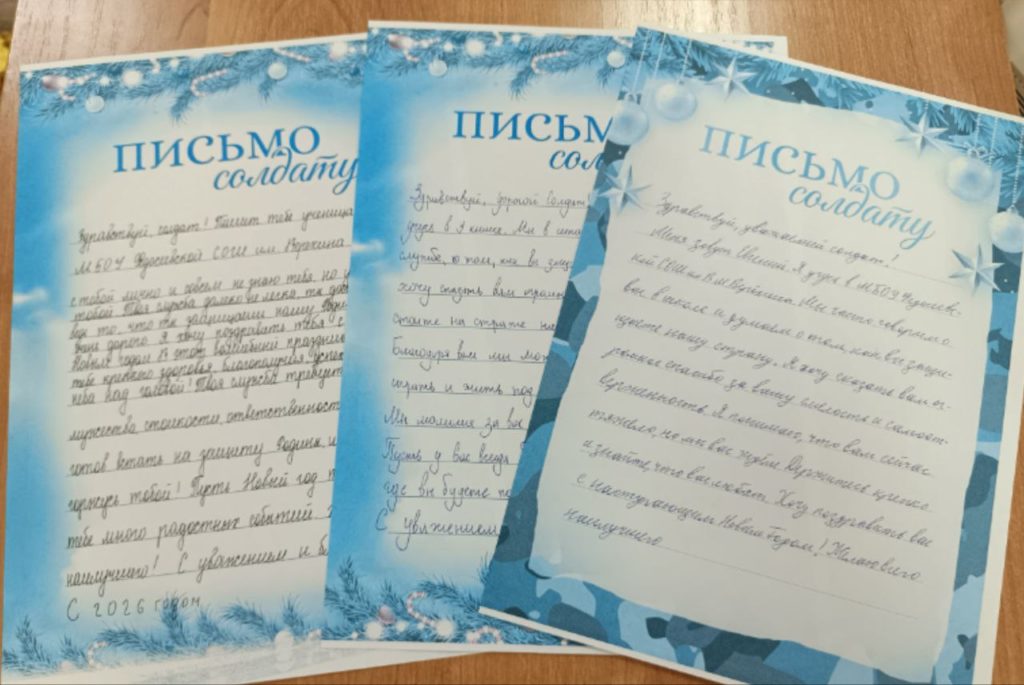 ПИСЬМО
солдату
Здравствуй, солдат! Пишет тебе ученица
МБОУ СОШ им
с тобой лично и совсем не знаю тебя, но
твоя служба далеко не легка, та
то, что ты защищаешь нашу
дорого. Я хочу поздравить тебя с
Новым годом! В этот волшебный праздник
тебе крепкого здоровья, благополучия,
неба над головой! Твоя служба требует
мужества стойкости, ответственност
готов встать на защиту Родины, и
горжусь тобой! Пусть Новый год п
тебе много радостных событий
наилучшего! С уважением и б
С 2026 годом
ПИСЬМ
сол
Здравствуй, дорогой Солдат!
учусь в классе. Мы в шко
службе, о том, как вы защ
хочу сказать вам огромн
стоите на страже на
благодаря вам мы мож
играть и жить под
Мы молимся за вас
Пусть у вас всегда
где вы будете по
С уважением
ПИСЬМО
солдату
Здравствуй, уважаемый солдат!
Меня зовут Евгений. Я учусь в МБОУ
кой СОШ им В.М. Мы часто говорим о
вас в школе и думаем о том, как вы защи-
щаете нашу страну. Я хочу сказать вам ог-
ромное спасибо за вашу смелость и самоот-
верженность. Я понимаю, что вам сейчас
тяжело, но мы вас ждём. Держитесь крепко
и знайте, что вас любят. Хочу поздравить вас
с наступающим Новым Годом! Желаю всего
наилучшего